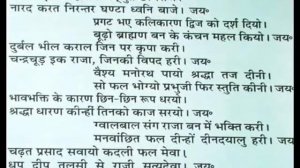 नारद करत निरन्तर घण्टा ध्वनि बाजे । जय०
प्रगट भए कलिकारण द्विज को दर्श दियो ।
बूढ़ो ब्राह्मण बन के कंचन महल कियो । जय०
दुर्बल भील कराल जिन पर कृपा करी ।
चन्द्रचूड़ इक राजा, जिनकी विपद हरी । जय०
वैश्य मनोरथ पायो श्रद्धा तज दीनी ।
सो फल भोग्यो प्रभुजी फिर स्तुति कीनी । जय०
भावभक्ति के कारण छिन-छिन रूप धरयो ।
श्रद्धा धारण कीन्हीं तिनको काज सरयो । जय०
ग्वालबाल संग राजा बन में भक्ति करी ।
मनवांछित फल दीन्हों दीनदयालु हरी । जय०
चढ़त प्रसाद सवायो कदली फल मेवा ।
धूप दीप तुलसी से राजी सत्यदेवा । जय०